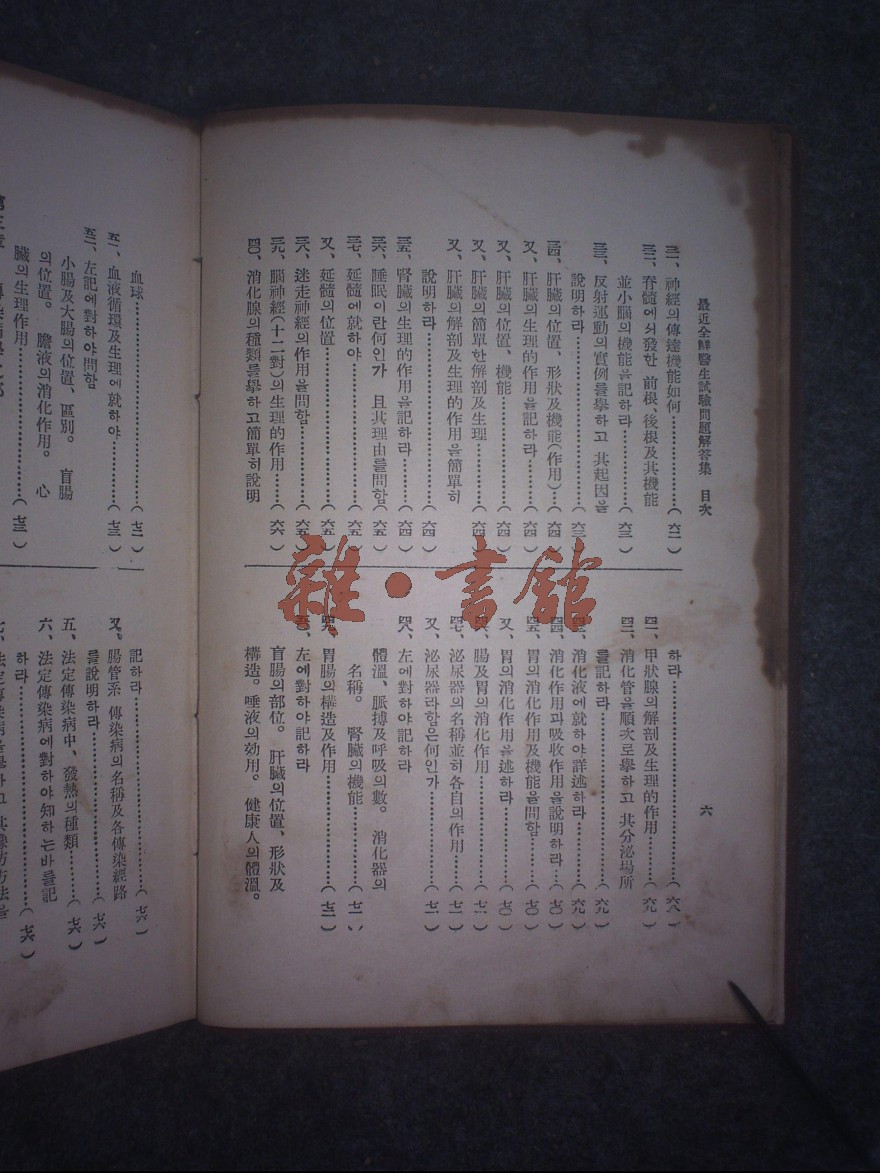 最近全鮮醫生試驗問題解答集 目次
六
三一、神經의傳達機能如何………(六二)
三二、脊髓에서發한 前根、後根及其機能
並小腦의機能을記하라………(六三)
三三、反射運動의實例를擧하고 其起因을
說明하라………(六三)
三四、肝臟의位置、形狀及機能(作用)…(六四)
又、肝臟의生理的作用을記하라………(六四)
又、肝臟의位置、機能………(六四)
又、肝臟의簡單한解剖及生理………(六四)
又、肝臟의解剖及生理的作用을簡單히
說明하라………(六四)
三五、腎臟의生理的作用을記하라………(六四)
三六、睡眠이란何인가 且其理由를問함(六五)
三七、延髓에就하야………(六五)
又、延髓의位置………(六五)
三八、迷走神經의作用을問함………(六五)
三九、腦神經(十二對)의生理的作用………(六六)
四〇、消化腺의種類를擧하고簡單히說明
하라………(六八)
四一、甲狀腺의解剖及生理的作用………(六九)
四二、消化管을順次로擧하고 其分泌場所
를記하라………(六九)
四三、消化液에就하야詳述하라………(六九)
四四、消化作用과吸收作用을說明하라…(七〇)
四五、胃의消化作用及機能을問함………(七〇)
又、胃의消化作用을述하라………(七〇)
四六、腸及胃의消化作用………(七一)
四七、泌尿器의名稱並히各自의作用………(七一)
又、泌尿器라함은何인가………(七一)
四八、左에對하야記하라
體溫、脈搏及呼吸의數。 消化器의
名稱。 腎臟의機能………(七一)
四九、胃腸의構造及作用………(七二)
五〇、左에對하야記하라
盲腸의部位。 肝臟의位置、形狀及
構造。唾液의効用。健康人의體溫。
血球………(七二)
五一、血液循環及生理에就하야………(七三)
五二、左記에對하야問함
小腸及大腸의位置、區別。 盲腸
의位置。 膽液의消化作用。 心
臟의生理作用………(七三)
記하라………(七六)
又、腸管系 傳染病의名稱及各傳染經路
를說明하라………(七六)
五、法定傳染病中、發熱의種類………(七六)
六、法定傳染病에對하야知하는바를記
하라………(七六)
雜·書館